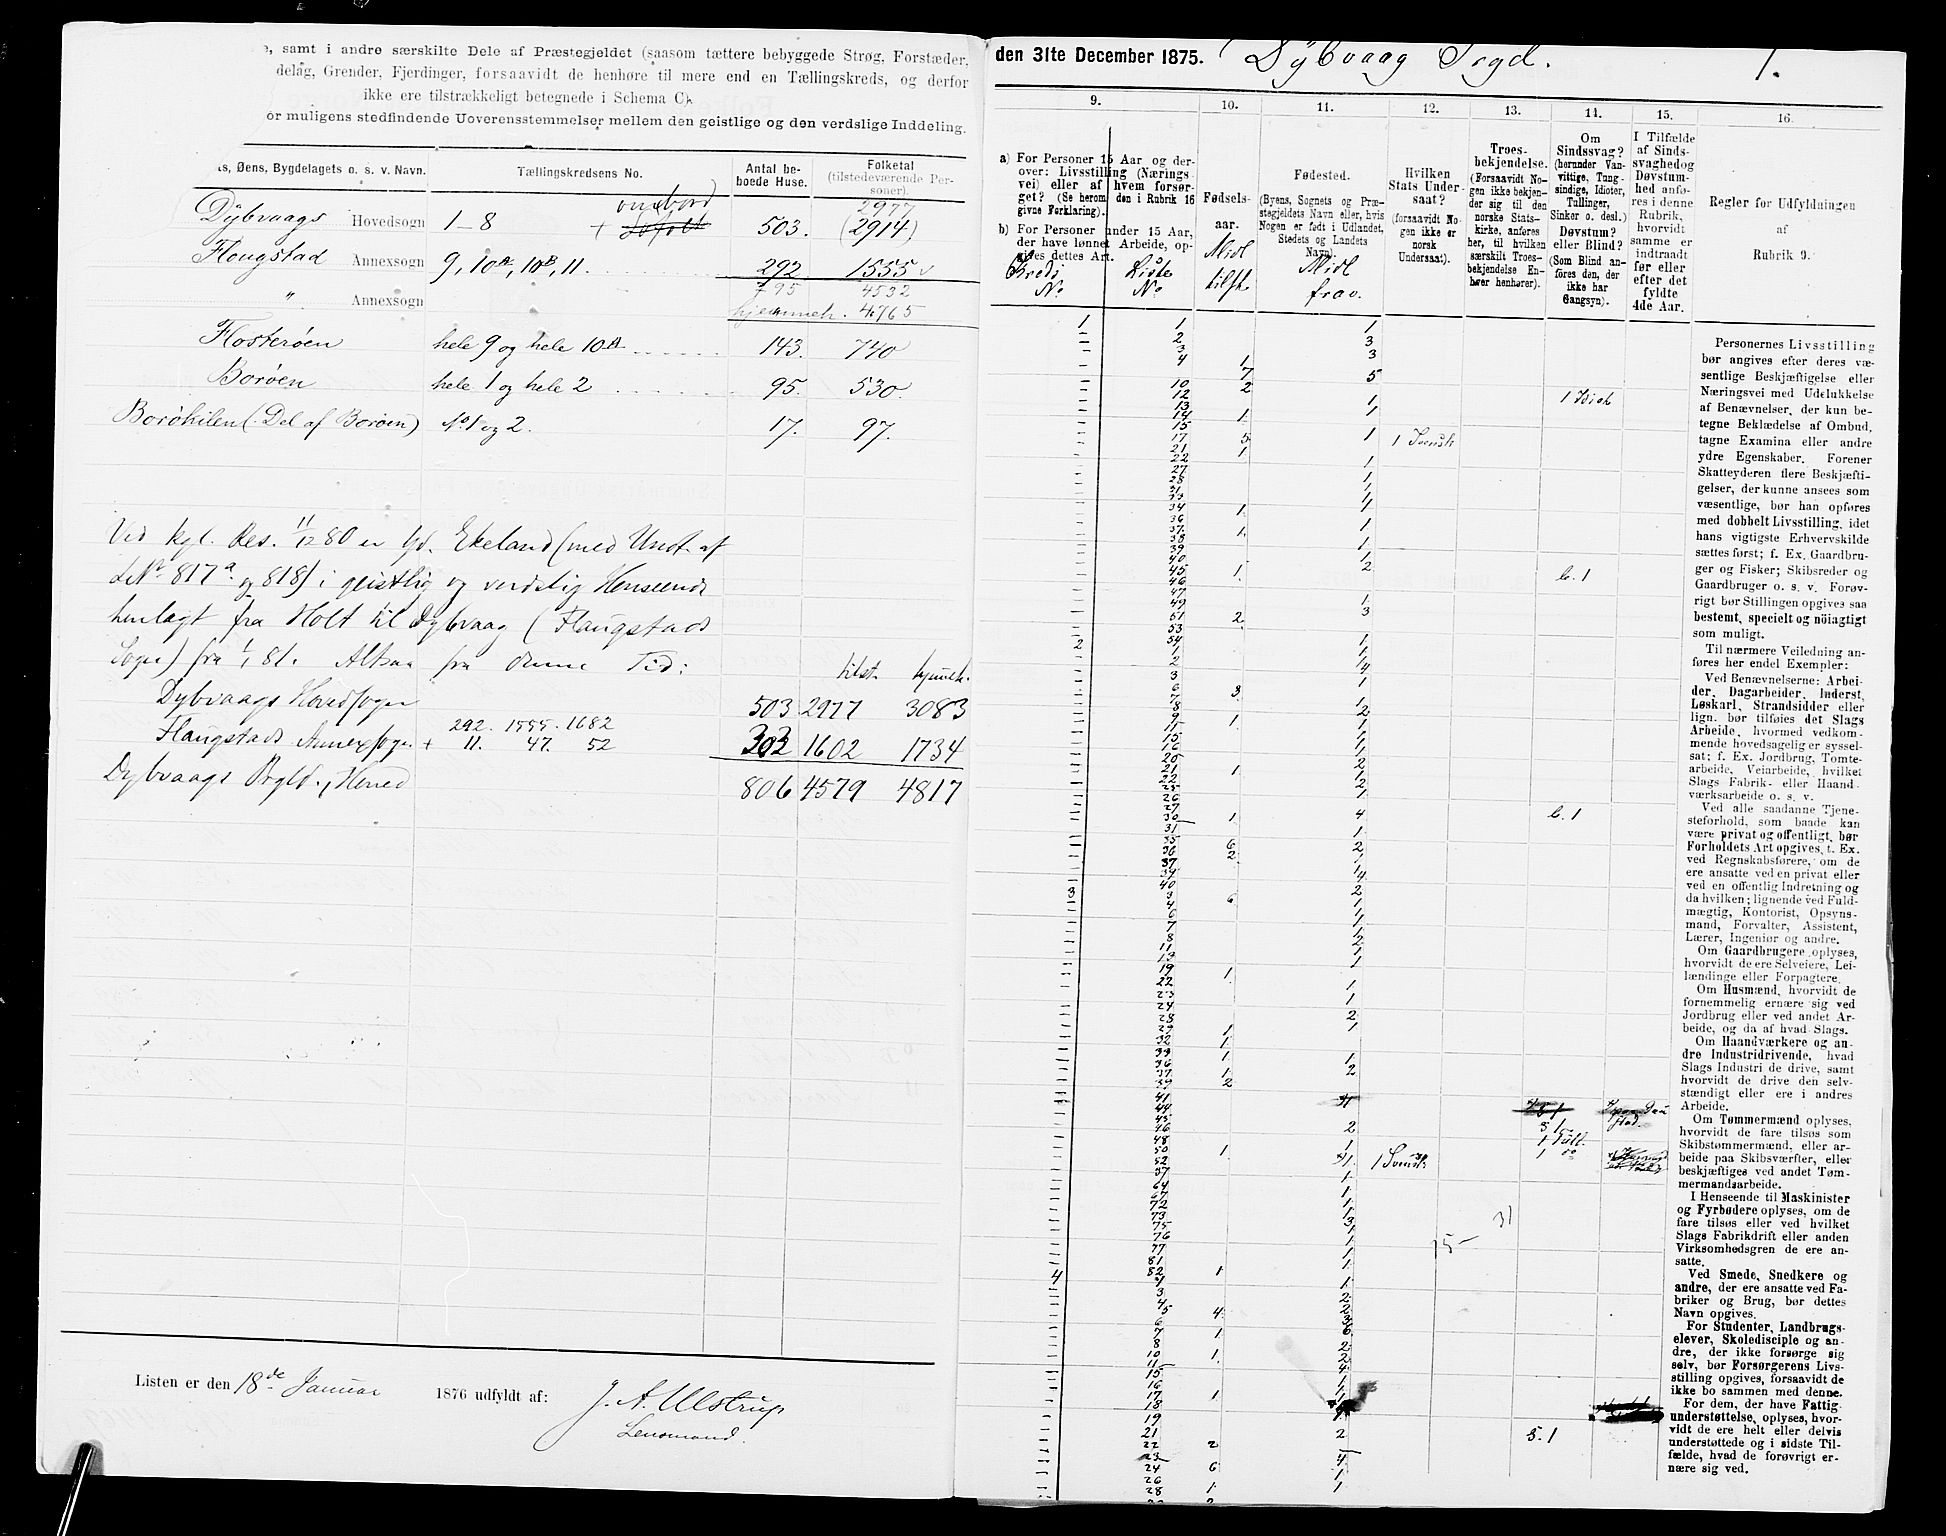 , samt i andre særskilte Dele af Præstegjeldet (saasom tættere bebyggede Strøg, Forstæder,
delag, Grender, Fjerdinger, forsaavidt de henhøre til mere end en Tællingskreds, og derfor
ikke ere tilstrækkeligt betegnede i Schema C).
or muligens stedfindende Uoverensstemmelser mellem den geistlige og den verdslige Inddeling.
s, Øens, Bygdelagets o. s. v. Navn. Tællingskredsens No. Antal be- Folketal
boede Huse. (tilstedeværende Per-
soner).
ombord 2977
Dybvaags Hovedsogn 1-8 + 503. (2914)
Flougstad Annexsogn 9, 10A, 10B, 11. 292 1555
" Annexsogn 795 4532
hjemmeh. 4765
Flosterøen hele 9 og hele 10A 143. 740
Borøen hele 1 og hele 2 95. 530.
Borøkilen (Del af Borøen) No. 1 og 2. 17. 97.
Ved kgl. Res. 11/12 80 er Gd. Ekeland (med Undt. af
LNr. 817a. og 818) i geistlig og verdslig Henseende
henlagt fra Holt til Dybvaag (Flaugstads
Sogn) fra 1/1 81. Altsaa fra denne Tid:
tilst. hjemmeh.
Dybvaags Hovedsogn 503 2977 3083
292. 1555. 1682
Flaugstads Annexsogn + 11. 47. 52 303 1602 1734
Dybvaags Prgld., Herred 806 4579 4817
Listen er den 18de Januar 1876 udfyldt af: J. A. Ulstrup
Lensmand.
den 31te December 1875. Dybvaag Prgd. 1.
9. 10. 11. 12. 13. 14. 15. 16.
a) For Personer 15 Aar og der-
over: Livsstilling (Nærings-
vei) eller af hvem forsør-
get? (Se herom den i Rubrik 16
givne Forklaring).
b) For Personer under 15 Aar,
der have lønnet Arbeide, op-
gives dettes Art.
Kreds Liste
No. No.
Fødsels-
aar.
Midl
tilst.
Fødested.
(Byens, Sognets og Præ-
stegjeldets Navn eller, hvis
Nogen er født i Udlandet,
Stedets og Landets
Navn).
Midl
frav.
Hvilken
Stats Under-
saat?
(forsaavidt No-
gen ikke er
norsk
Undersaat).
Troes-
bekjendelse.
(Forsaavidt No-
gen ikke bekjen-
der sig til den
norske Stats-
kirke, anføres
her, til hvilken
særskilt Troes-
bekjendelse En-
hver henhører).
Om
Sindssvag?
(herunder Van-
vittige, Tung-
sindige, Idioter,
Tullinger,
Sinker o. desl.)
Døvstum?
eller Blind?
(Som Blind an-
føres den, der
ikke har
Gangsyn).
I Tilfælde
af Sinds-
svaghed og
Døvstum-
hed anfø-
res i denne
Rubrik,
hvorvidt
samme er
indtraadt
før eller
efter det
fyldte
4de Aar.
Regler for Udfyldningen
af
Rubrik 9.
1 1 1
2 3
3 3
4 1
7 5
10 2
12 1
13 1
14 1
15
17 5 1 1 Svensk
21 1
22 1
27 1
28 1
31 1
33 1
34 1
36
37 1
38
39 1
40
45 1 2 b. 1
46
47
49 1
51 2 3
53
2 54 1
1 1
2 4
3 1
6 3
7
8 2
9 1 1
15 1
16 1
20 2
21 1 1
22 2
25 1
26
27
30 1 4 b. 1
31 1
35 6 2
36 2 1
37
39 4
40 2
3 3 6 1
4 1
6
7 1
8 2
11 1
13 1
19 1
22 1
23
24 1
28 2
29 1 1
32 1
33 1 1
36 2
37 1
39 2
41
44
45
46 2
48 1
50 1
52 1 Svensk
57 1
64
67 1
72 1
73 3
75
76 1
77 1
81 1
4 82 1
1 1
3 2
4 2
5 4 3
6 6
7 1
8 2
10 1 2
11 4
15 1
16 1
17 1
18
19
21 2 S. 1
22 2
23 4
24 6 1
26
28 1 1
Personernes Livsstilling
bør angives efter deres væ-
sentlige Beskjæftigelse eller
Næringsvei med Udelukkelse
af Benævnelser, der kun be-
tegne Beklædelse af Ombud,
tagne Examina eller andre
ydre Egenskaber. Forener
Skatteyderen flere Beskjæfti-
gelser, der kunne ansees som
væsentlige, bør han opføres
med dobbelt Livsstilling, idet
hans vigtigste Erhvervskilde
sættes først; f. Ex. Gaardbru-
ger og Fisker; Skibsreder og
Gaardbruger o. s. v. Forøv-
rigt bør Stillingen opgives saa
bestemt, specielt og nöiagtigt
som muligt.
Til nærmere Veiledning an-
føres her endel Exempler:
Ved Benævnelserne: Arbei-
der, Dagarbeider, Inderst,
Løskarl, Strandsidder eller
lign. bør tilføies det Slags
Arbeide, hvormed vedkom-
mende hovedsagelig er syssel-
sat; f. Ex. Jordbrug, Tomte-
arbeide, Veiarbeide, hvilket
Slags Fabrik- eller Haand-
værksarbeide o. s. v.
Ved alle saadanne Tjene-
steforhold, som baade kan
være privat og offentligt, bør
Forholdets Art opgives, t. Ex.
ved Regnskabsførere, om de
ere ansatte ved en privat eller
ved en offentlig Indretning og
da hvilken; lignende ved Fuld-
mægtig, Kontorist, Opsyns-
mand, Forvalter, Assistent,
Lærer, Ingeniør og andre.
Om Gaardbrugere oplyses,
hvorvidt de ere Selveiere, Lei-
lændinge eller Forpagtere.
Om Husmænd, hvorvidt de
fornemmelig ernære sig ved
Jordbrug eller ved andet Ar-
beide, og da af hvad Slags.
Om Haandværkere og an-
dre Industridrivende, hvad
Slags Industri de drive, samt
hvorvidt de drive den selv-
stændigt eller ere i andres
Arbeide.
Om Tømmermænd oplyses,
hvorvidt de fare tilsøs som
Skibstømmermænd, eller ar-
beide paa Skibsværfter, eller
beskjæftiges ved andet Tøm-
mermandsarbeide.
I Henseende til Maskinister
og Fyrbødere oplyses, om de
fare tilsøs eller ved hvilket
Slags Fabrikdrift eller anden
Virksomhedsgren de ere an-
satte.
Ved Smede, Snedkere og
andre, der ere ansatte ved Fa-
briker og Brug, bør dettes
Navn opgives.
For Studenter, Landbrugs-
elever, Skoledisciple og an-
dre, der ikke forsørge sig
selv, bør Forsørgerens Livs-
stilling opgives, forsaavidt de
ikke bo sammen med denne.
For dem, der have Fattig-
understøttelse, oplyses, hvor-
vidt de ere helt eller delvis
understøttede og i sidste Til-
fælde, hvad de forøvrigt er-
nære sig ved.